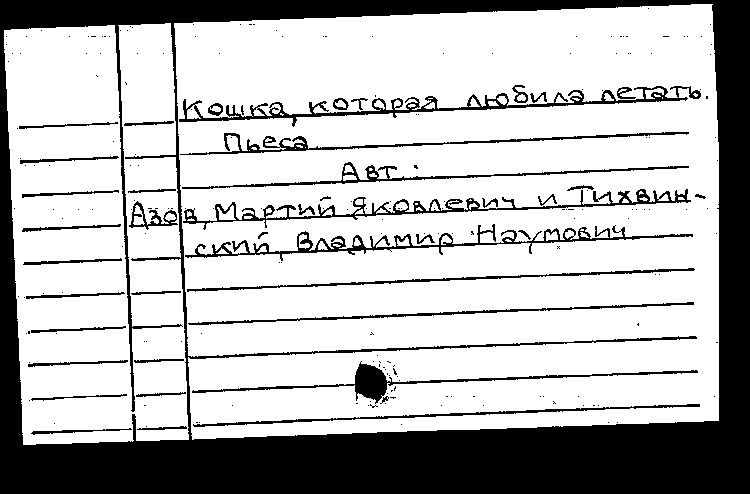 Кошка, которая любила летать.
Пьеса
Авт.:
Азов, Мартий Яковлевич и Тихвин-
ский, Владимир Наумович